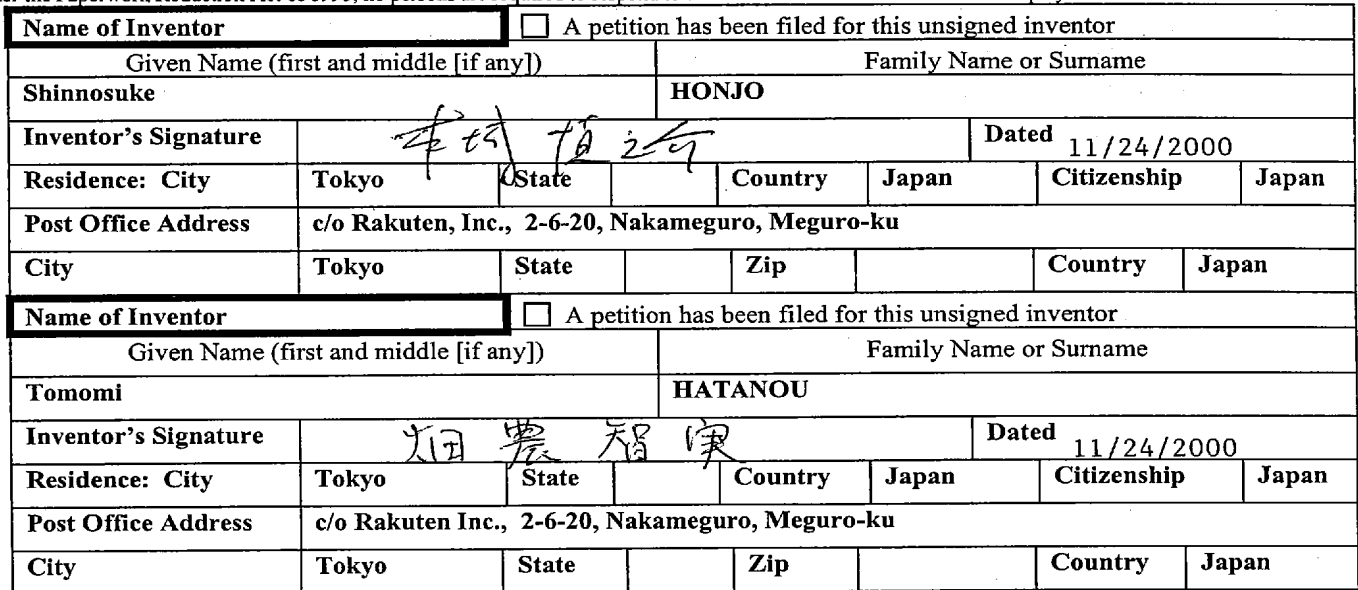 Name of Inventor ☐ A petition has been filed for this unsigned inventor
Given Name (first and middle [if any]) Family Name or Surname
Shinnosuke HONJO
Inventor's Signature 本城 慎之介 Dated 11/24/2000
Residence: City Tokyo State Country Japan Citizenship Japan
Post Office Address c/o Rakuten, Inc., 2-6-20, Nakameguro, Meguro-ku
City Tokyo State Zip Country Japan
Name of Inventor ☐ A petition has been filed for this unsigned inventor
Given Name (first and middle [if any]) Family Name or Surname
Tomomi HATANOU
Inventor's Signature 畑農 智実 Dated 11/24/2000
Residence: City Tokyo State Country Japan Citizenship Japan
Post Office Address c/o Rakuten Inc., 2-6-20, Nakameguro, Meguro-ku
City Tokyo State Zip Country Japan